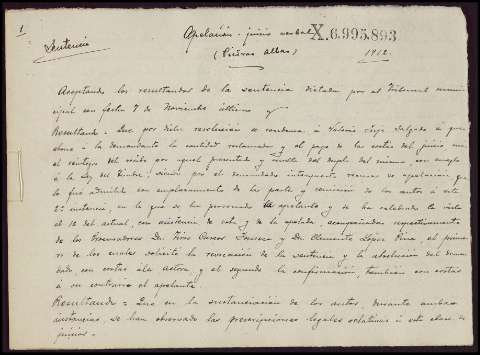 1
Sentencia
Apelación - juicio verbal
X.6.995.893
(Piedras Albas)
1912.
Aceptando los resultandos de la sentencia dictada por el Tribunal muni-
cipal con fecha 7 de Noviembre último y
Resultando = Que por dicha resolución se condena á Valerio Jorge Delgado á que
abone á la demandante la cantidad reclamada y al pago de las costas del juicio con
el reintegro del recibo por aquel presentado y multa del duplo del mismo, con arreglo
á la Ley del Timbre; siendo por el demandado interpuesto recurso de apelación que
le fué admitido con emplazamiento de las partes y remisión de los autos á esta
2ª instancia, en la que se ha personado la apelante y se ha celebrado la vista
el 12 del actual, con asistencia de esta y de la apelada, acompañados respectivamente
de los Procuradores Dn. y Dn. Clemente López, el prime-
ro de los cuales solicitó la revocación de la sentencia y la absolución del deman-
dado con costas á la actora, y el segundo la confirmación, también con costas
á su contrario el apelante.
Resultando = Que en la sustanciación de los autos durante ambas
instancias se han observado las prescripciones legales relativas á esta clase de
juicios.